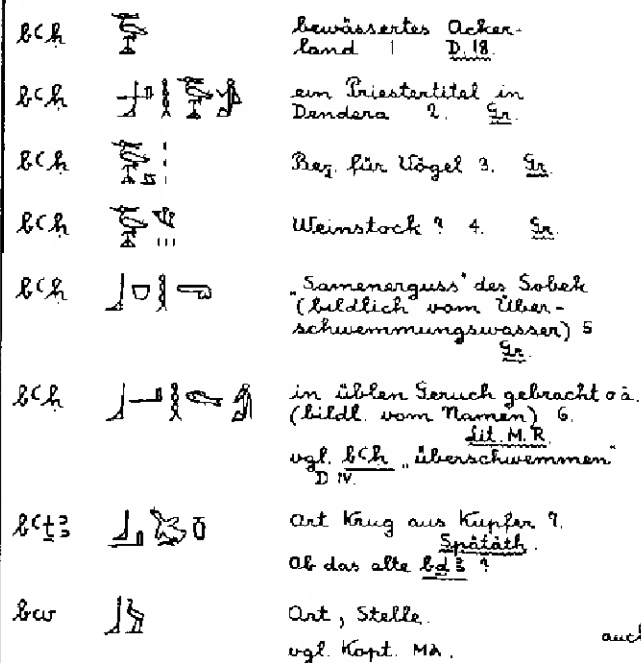 bꜥḥ bewässertes Acker-
land 1 D. 18.
bꜥḥ ein Priestertitel in
Dendera 2. Gr.
bꜥḥ Bez. für Vögel 3. Gr.
bꜥḥ Weinstock ? 4. Gr.
bꜥḥ „Samenerguss" des Sobek
(bildlich vom Über-
schwemmungswasser) 5
Gr.
bꜥḥ in üblen Geruch gebracht o ä.
(bildl. vom Namen) 6.
Lit. M. R.
vgl. bꜥḥ „überschwemmen"
D IV.
bꜥṯꜣ Art Krug aus Kupfer ?.
Spätäth.
Ob das alte bḏꜣ ?
bw Ort, Stelle.
auch
vgl. Kopt. ⲙⲁ.